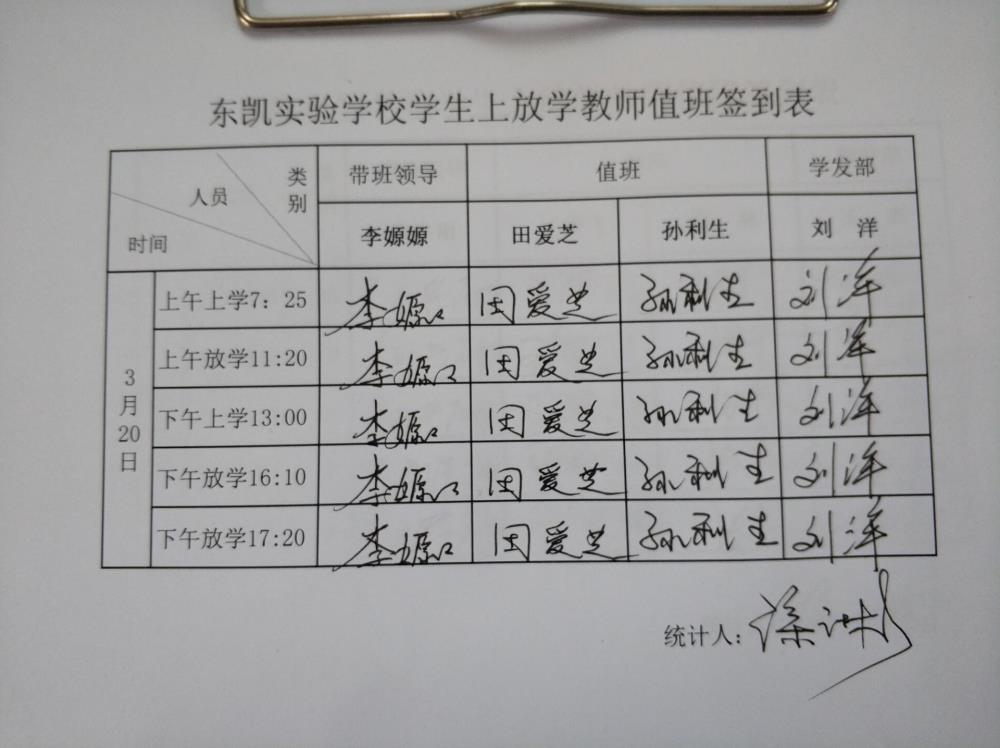 东凯实验学校学生上放学教师值班签到表
人员 类别 时间 带班领导 值班 学发部
李嫄嫄 田爱芝 孙利生 刘洋
3月20日
上午上学7：25 李嫄 田爱芝 孙利生 刘洋
上午放学11:20 李嫄 田爱芝 孙利生 刘洋
下午上学13:00 李嫄 田爱芝 孙利生 刘洋
下午放学16:10 李嫄 田爱芝 孙利生 刘洋
下午放学17:20 李嫄 田爱芝 孙利生 刘洋
统计人：